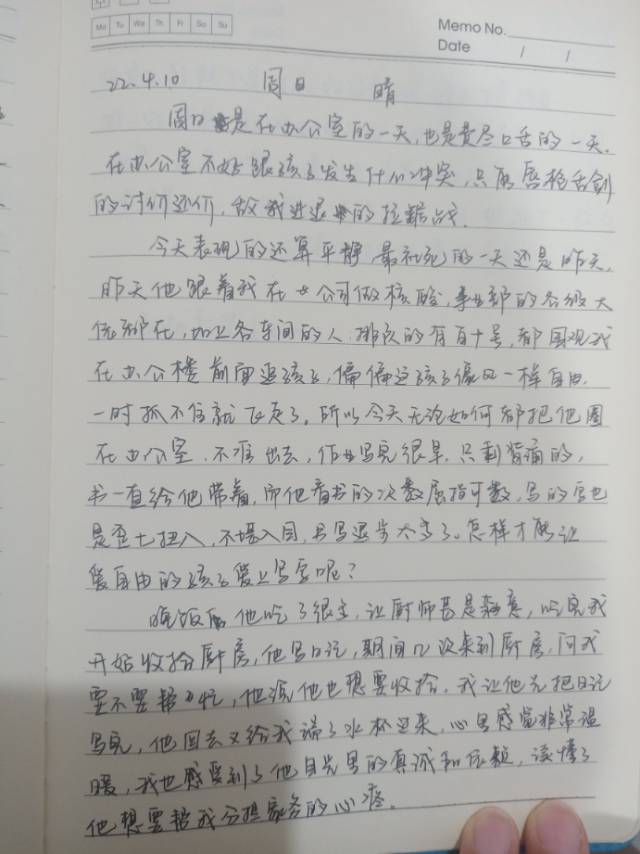 Mo Tu We Th Fr Sa Su
Memo No.
Date / /
22.4.10 周日 晴
周日是在办公室的一天,也是费尽口舌的一天。
在办公室不好跟孩子发生什么冲突,只能唇枪舌剑
的讨价还价,敌我进退的拉锯战。
今天表现的还算平静,最社死的一天还是昨天,
昨天他跟着我在公司做核酸,事业部的各级大
佬都在,加上各车间的人,排队的有百十号,都围观我
在办公楼前面追孩子,偏偏这孩子像风一样自由,
一时抓不住就飞走了。所以今天无论如何都把他圈
在办公室,不准出去,作业写完很早,只剩背诵的,
书一直给他带着,而他看书的次数屈指可数,写的字也
是歪七扭八,不堪入目,书写退步太多了。怎样才能让
爱自由的孩子爱上写字呢?
晚饭后他吃了很多,让厨师甚是满意,吃完我
开始收拾厨房,他写日记,期间几次来到厨房,问我
要不要帮忙,他说他也想要收拾,我让他先把日记
写完,他回去又给我端了水杯过来,心里感觉非常温
暖,我也感受到了他目光里的真诚和依赖,读懂了
他想要帮我分担家务的心疼。